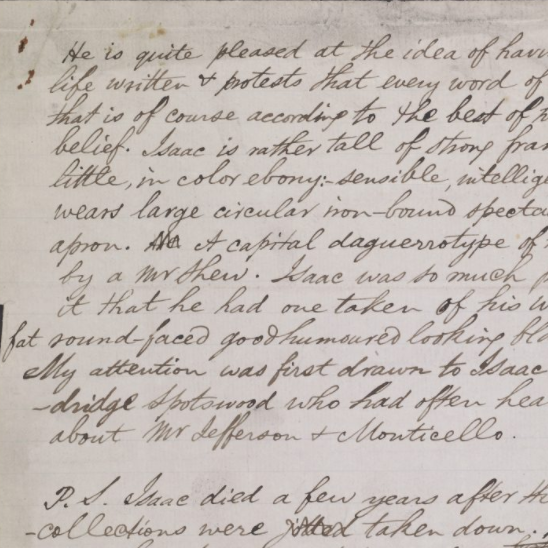 He is quite pleased at the idea of havi
life written & protests that every word of
that is of course according to the best of h
belief. Isaac is rather tall of strong fram
little, in color ebony:- sensible, intellige
wears large circular iron-bound specta
apron. A capital daguerrotype of
by a Mr Shew. Isaac was so much p
it that he had one taken of his w
fat round-faced goodhumoured looking bla
My attention was first drawn to Isaac
-dridge Spotswood who had often hea
about Mr Jefferson & Monticello.
P. S. Isaac died a few years after th
-collections were jotted taken down.